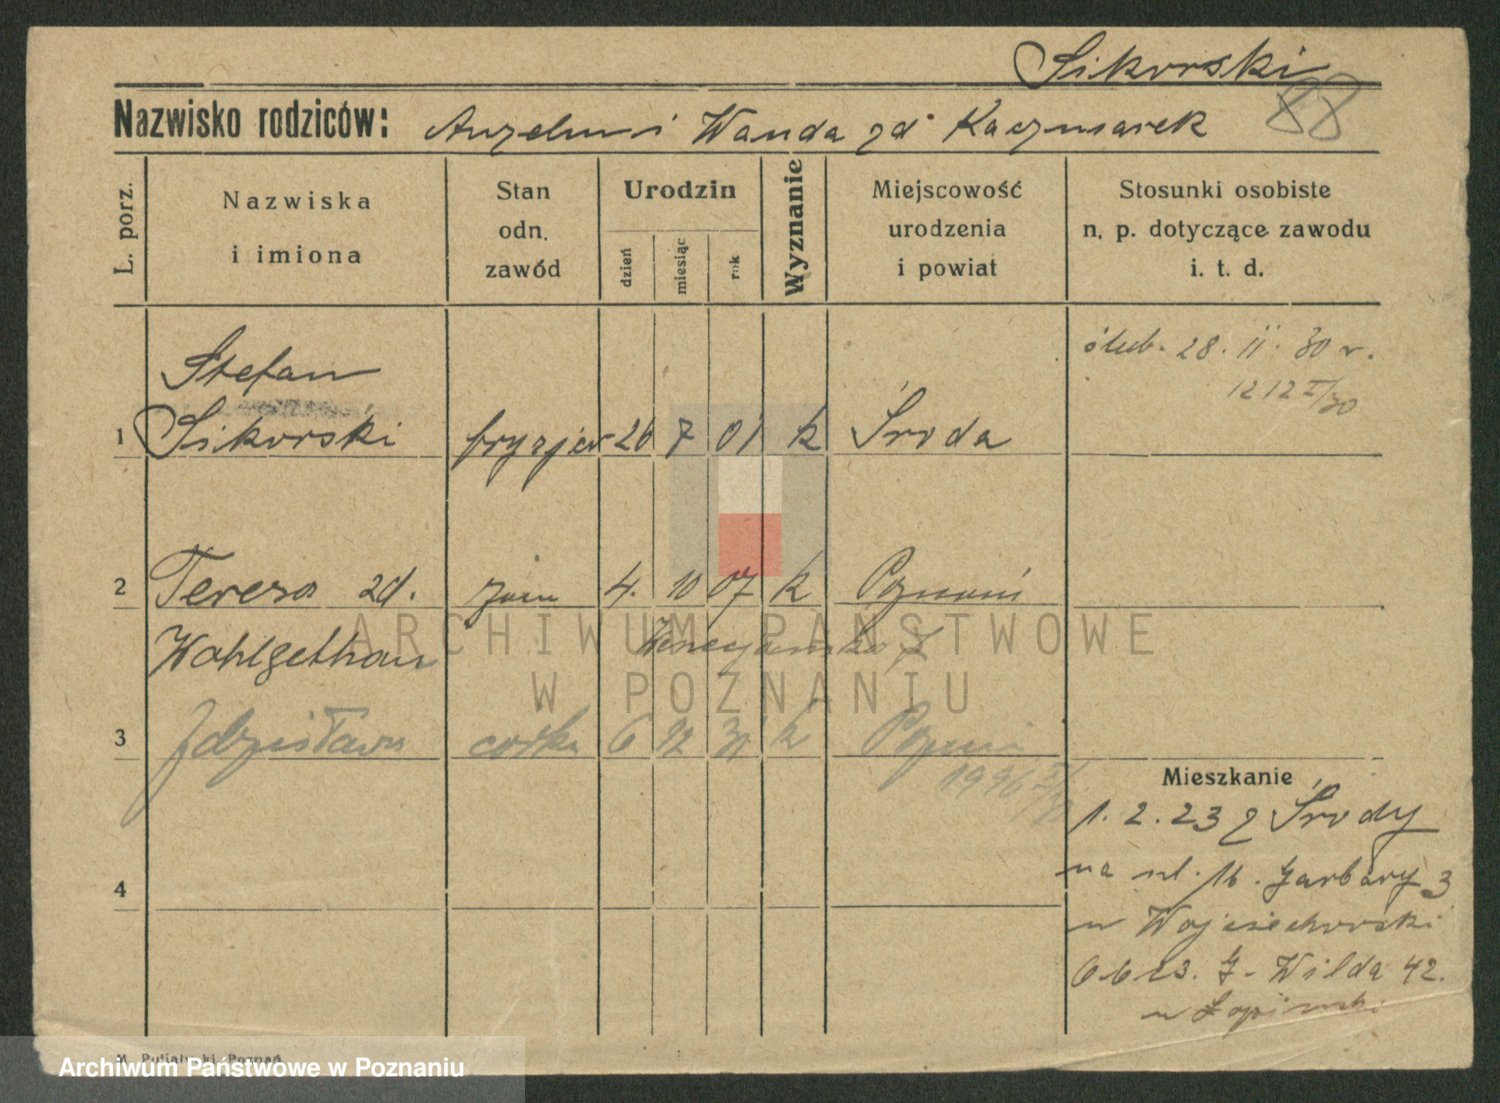 Sikorski
88
Nazwisko rodziców: Anzelm i Wanda zd Kaczmarek
L. porz.
Nazwiska
i imiona
Stan
odn.
zawód
Urodzin
dzień
miesiąc
rok
Wyznanie
Miejscowość
urodzenia
i powiat
Stosunki osobiste
n. p. dotyczące zawodu
i. t. d.
ślub. 28. II. 30 r.
1212 I/30
Stefan
1 Sikorski fryzjer 26 7 01 k Środa
2 Teresa zd. żona 4. 10 07 k Poznań
Wohlgethan
3 Zdzisława córka 6 12 31 k Poznań
Mieszkanie
1. 2. 23 z Środy
na ul. 16. Garbary 3
u Wojciechowski
6 6 23. G. Wilda 42.
u
4
ARCHIWUM PAŃSTWOWE
W POZNANIU
Poznań
Archiwum Państwowe w Poznaniu